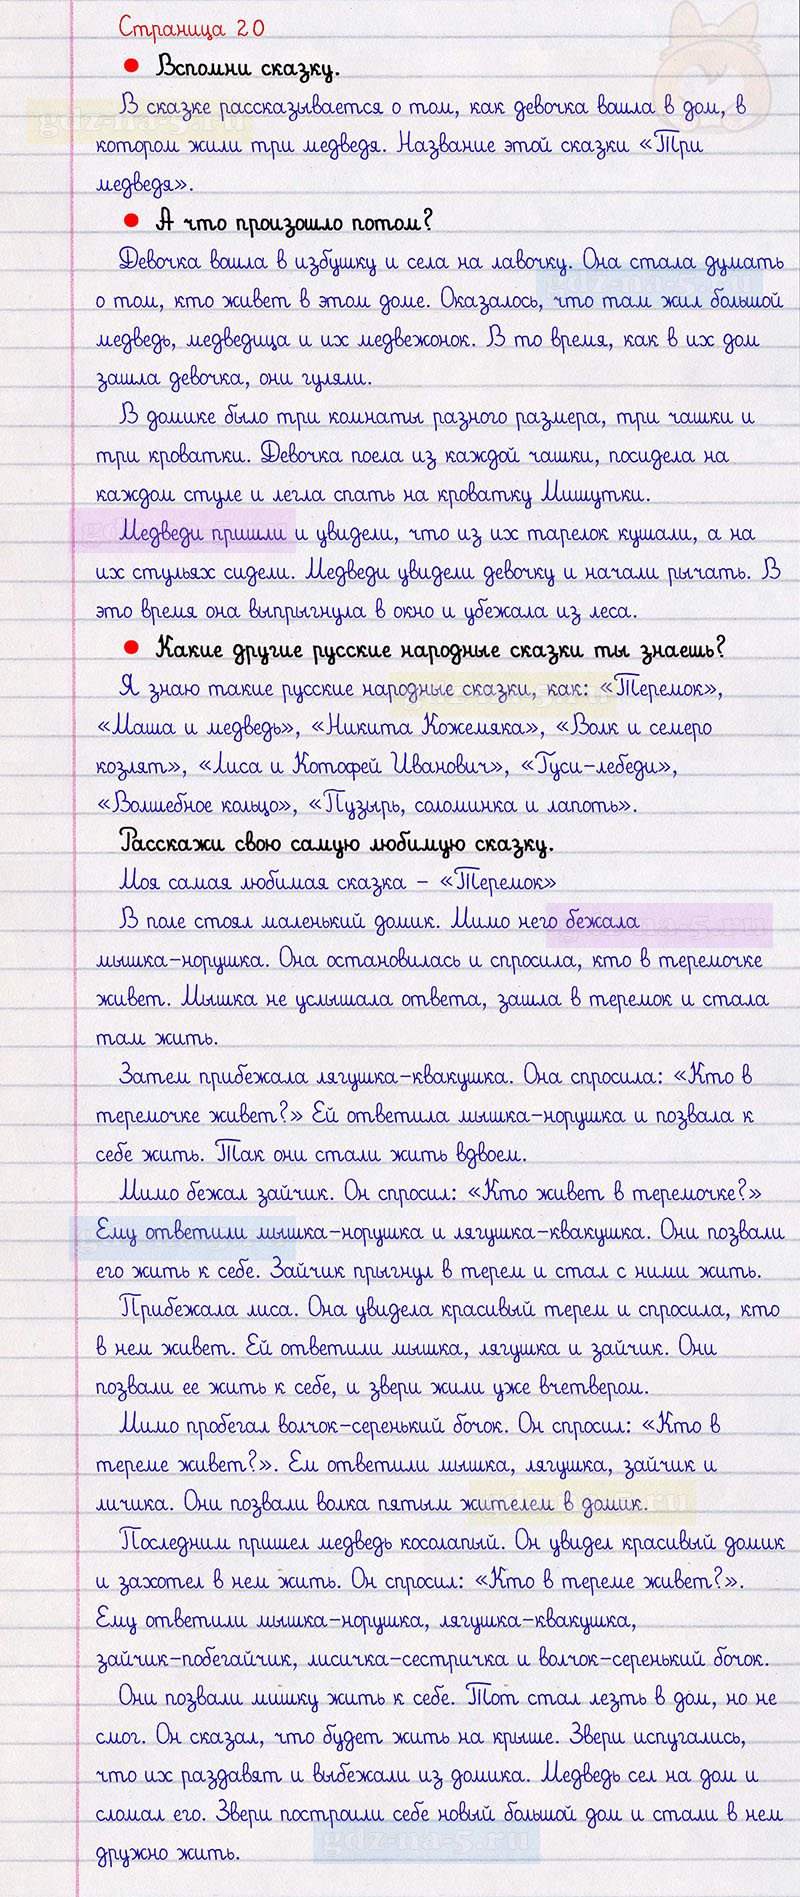 Страница 20
• Вспомни сказку.
В сказке рассказывается о том, как девочка вошла в дом, в
котором жили три медведя. Название этой сказки «Три
медведя».
• А что произошло потом?
Девочка вошла в избушку и села на лавочку. Она стала думать
о том, кто живет в этом доме. Оказалось, что там жил большой
медведь, медведица и их медвежонок. В то время, как в их дом
зашла девочка, они гуляли.
В домике было три комнаты разного размера, три чашки и
три кроватки. Девочка поела из каждой чашки, посидела на
каждом стуле и легла спать на кроватку Мишутки.
Медведи пришли и увидели, что из их тарелок кушали, а на
их стульях сидели. Медведи увидели девочку и начали рычать. В
это время она выпрыгнула в окно и убежала из леса.
• Какие другие русские народные сказки ты знаешь?
Я знаю такие русские народные сказки, как: «Теремок»,
«Маша и медведь», «Никита Кожемяка», «Волк и семеро
козлят», «Лиса и Котофей Иванович», «Гуси-лебеди»,
«Волшебное кольцо», «Пузырь, соломинка и лапоть».
Расскажи свою самую любимую сказку.
Моя самая любимая сказка – «Теремок»
В поле стоял маленький домик. Мимо него бежала
мышка-норушка. Она остановилась и спросила, кто в теремочке
живет. Мышка не услышала ответа, зашла в теремок и стала
там жить.
Затем прибежала лягушка-квакушка. Она спросила: «Кто в
теремочке живет?» Ей ответила мышка-норушка и позвала к
себе жить. Так они стали жить вдвоем.
Мимо бежал зайчик. Он спросил: «Кто живет в теремочке?»
Ему ответили мышка-норушка и лягушка-квакушка. Они позвали
его жить к себе. Зайчик прыгнул в терем и стал с ними жить.
Прибежала лиса. Она увидела красивый терем и спросила, кто
в нем живет. Ей ответили мышка, лягушка и зайчик. Они
позвали ее жить к себе, и звери жили уже вчетвером.
Мимо пробегал волчок-серенький бочок. Он спросил: «Кто в
тереме живет?». Ем ответили мышка, лягушка, зайчик и
личика. Они позвали волка пятым жителем в домик.
Последним пришел медведь косолапый. Он увидел красивый домик
и захотел в нем жить. Он спросил: «Кто в тереме живет?».
Ему ответили мышка-норушка, лягушка-квакушка,
зайчик-побегайчик, лисичка-сестричка и волчок-серенький бочок.
Они позвали мишку жить к себе. Тот стал лезть в дом, но не
смог. Он сказал, что будет жить на крыше. Звери испугались,
что их раздавят и выбежали из домика. Медведь сел на дом и
сломал его. Звери построили себе новый большой дом и стали в нем
дружно жить.